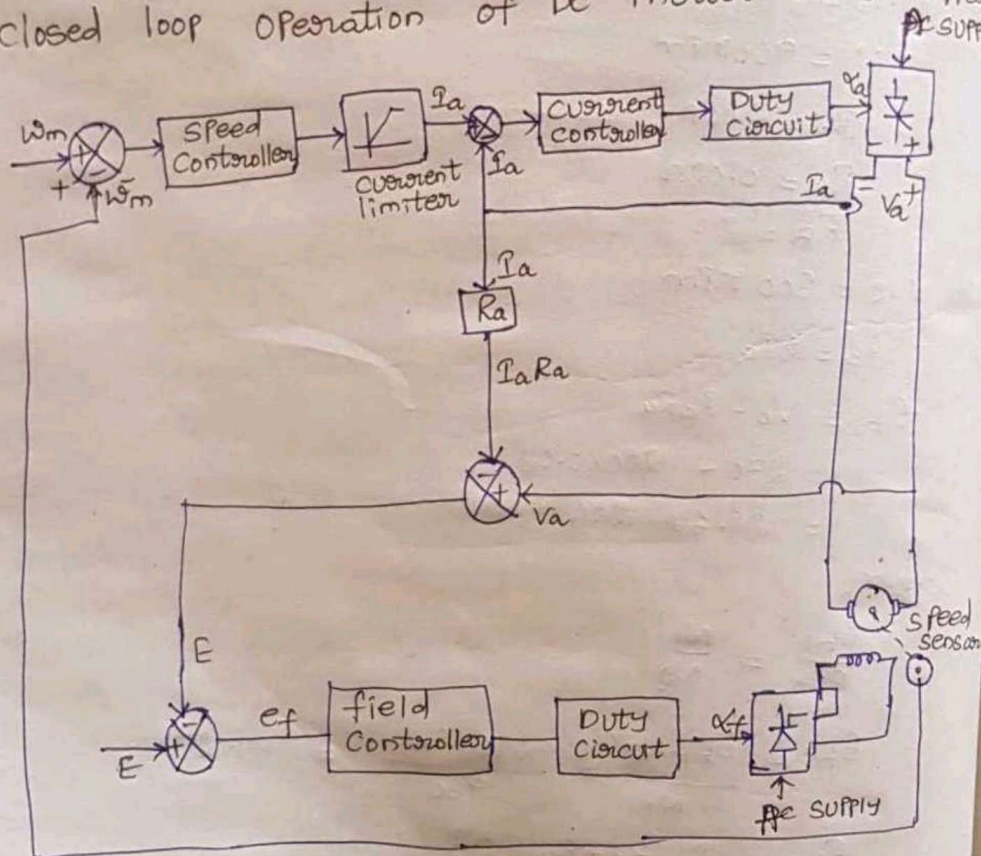 closed loop operation of DC
AC SUPP
ωm
+
-
+
ωm
Speed
Controller
current
limiter
Ia
Ia
current
controller
DUTY
Circuit
αa
- +
Ia
-
Va+
Ia
Ra
IaRa
-
+
Va
speed
sensor
E
-
+
E
ef
field
Controller
DUTY
Circut
αf
AC SUPPLY